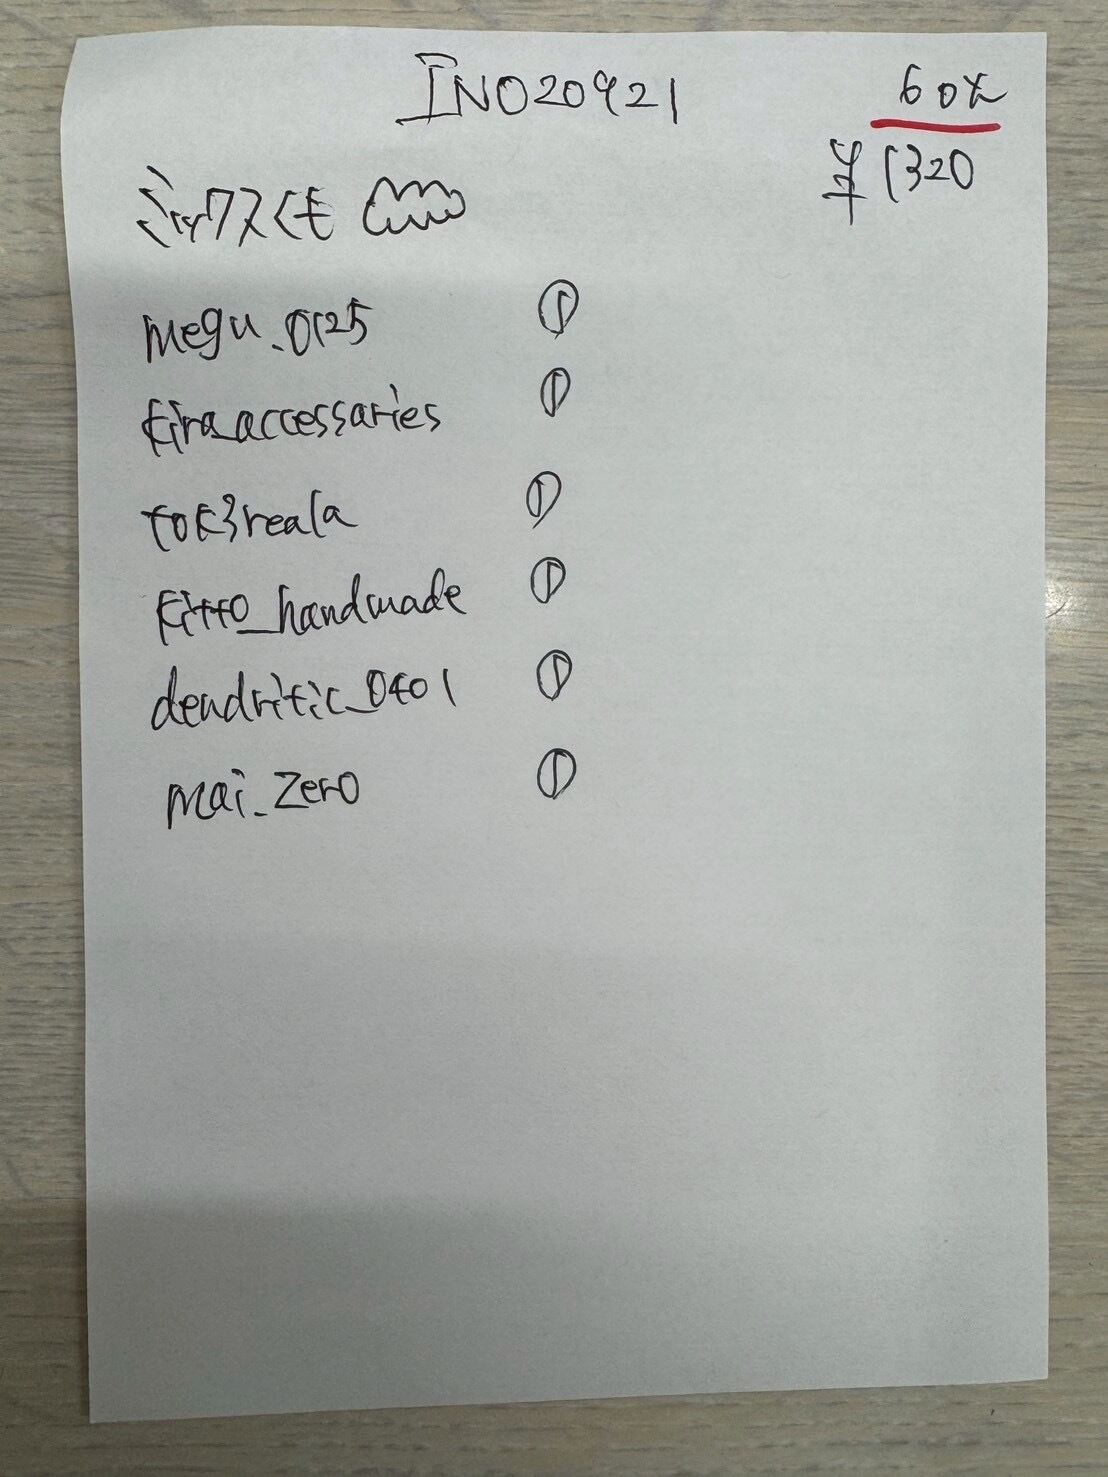 INO20921
60%
¥1320
ミックスくも
megu_0125
kira_accessaries
tok3reala
kitto_handmade
dendritic_0401
mai_zero
①
①
①
①
①
①